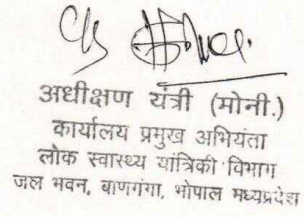 अधीक्षण यंत्री (मोनी.)
कार्यालय प्रमुख अभियंता
लोक स्वास्थ्य यांत्रिकी विभाग
जल भवन, बाणगंगा, भोपाल मध्यप्रदेश